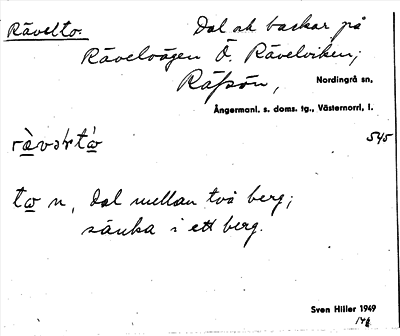 Rävelto. Dal och backar på
Rävelvägen Ö. Rävelviken,
Räfsön, Nordingrå sn,
Ångermanl. s. doms. tg., Västernorrl, l.
545
to n, dal mellan två berg;
sänka i ett berg.
Sven Hiller 1949